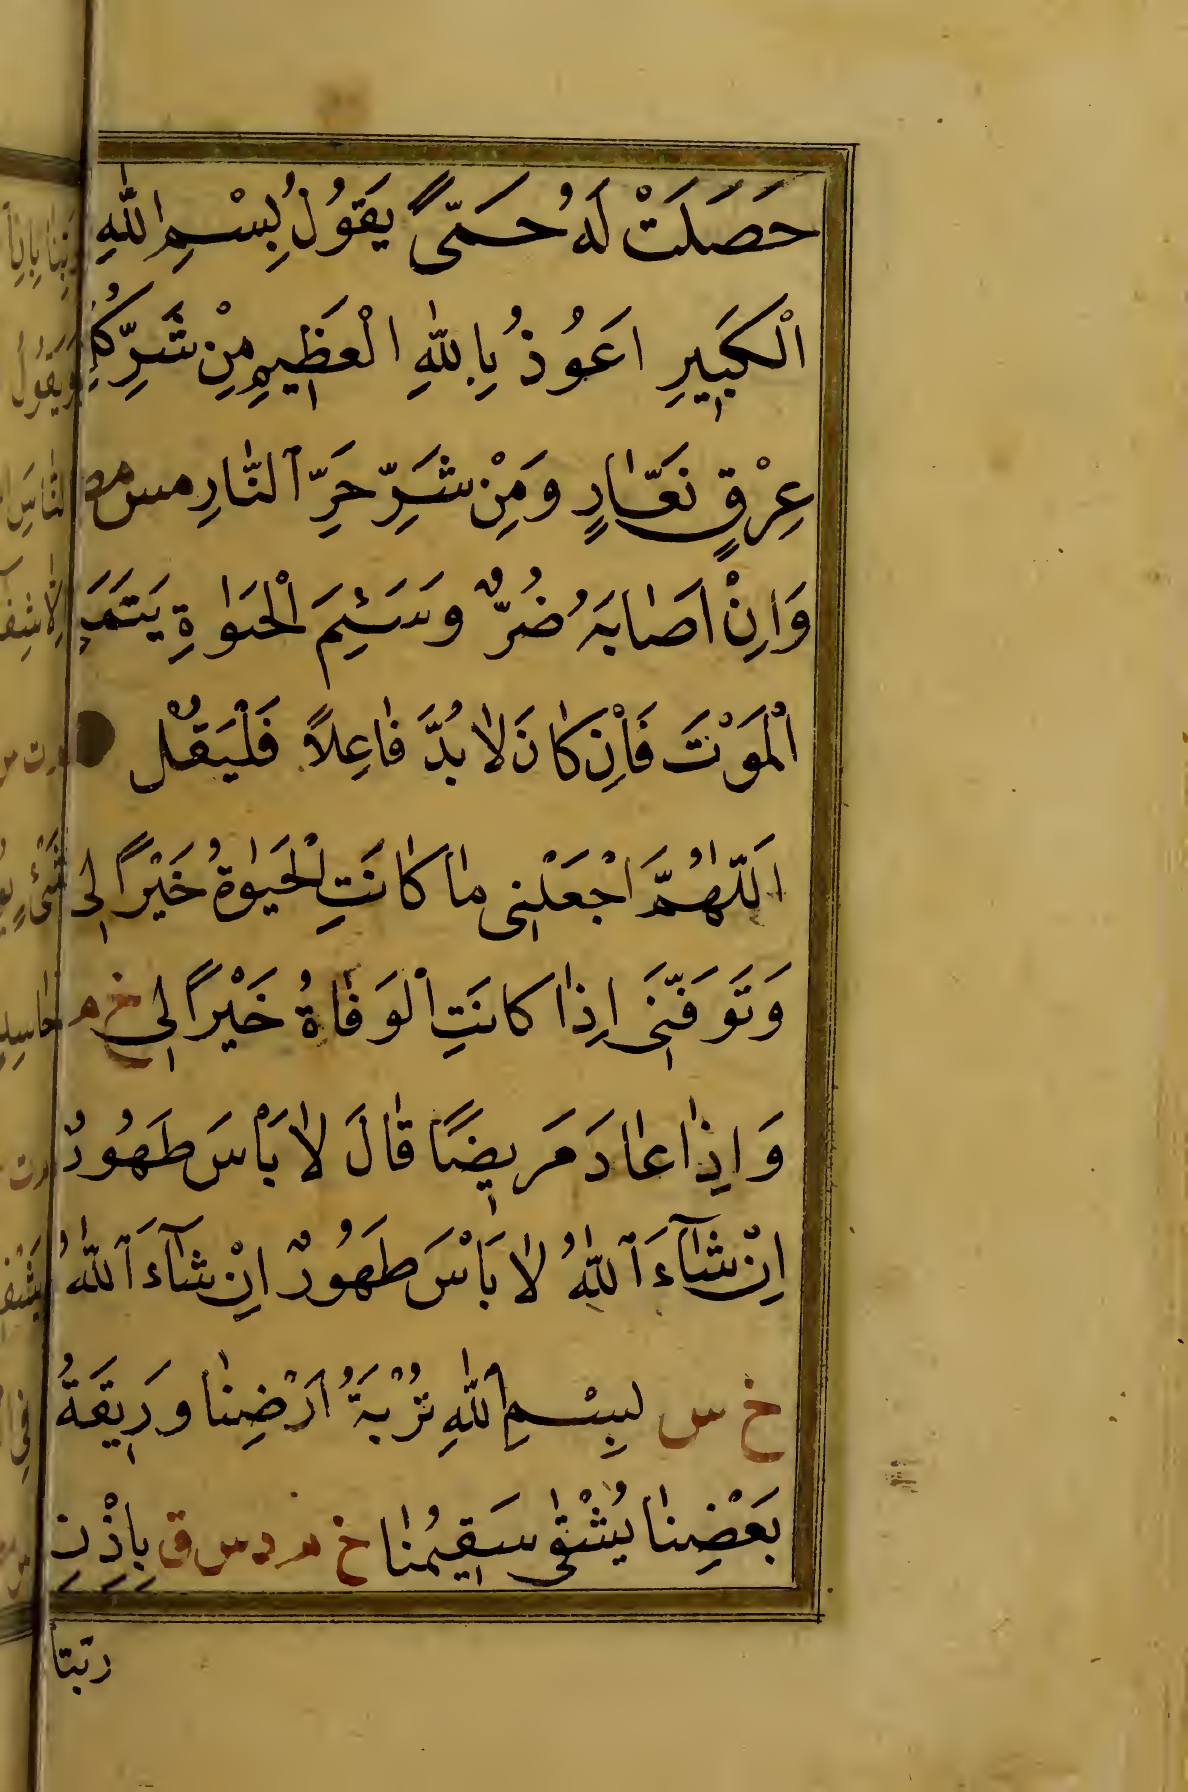 حَصَلَتْ لَهُ حَمّىً يَقُولُ بِسْمِ اللّٰهِ
الْكَبِيرِ اَعُوذُ بِاللّٰهِ الْعَظِيمِ مِنْ شَرِّ كُلِّ
عِرْقٍ نَعَّارٍ وَمِنْ شَرِّ حَرِّ النَّارِ مس مص
وَاِنْ اَصَابَهُ ضُرٌّ وَسَئِمَ الْحَيٰوةِ يَتَمَنّٰى
الْمَوْتَ فَاِنْ كَانَ لَا بُدَّ فَاعِلاً فَلْيَقُلْ
اَللّٰهُمَّ اجْعَلْنِى مَا كَانَتِ الْحَيٰوةُ خَيْراً لِى
وَتَوَفَّنِى اِذَا كَانَتِ الْوَفَاةُ خَيْراً لِى خ م
وَاِذَا عَادَ مَرِيضًا قَالَ لَا بَاْسَ طَهُورٌ
اِنْ شَآءَ اللّٰهُ لَا بَاْسَ طَهُورٌ اِنْ شَآءَ اللّٰهُ
خ س بِسْمِ اللّٰهِ تُرْبَةُ اَرْضِنَا وَرِيقَةُ
بَعْضِنَا يُشْفٰى سَقِيمُنَا خ م د س ق بِاِذْنِ
ربّنا